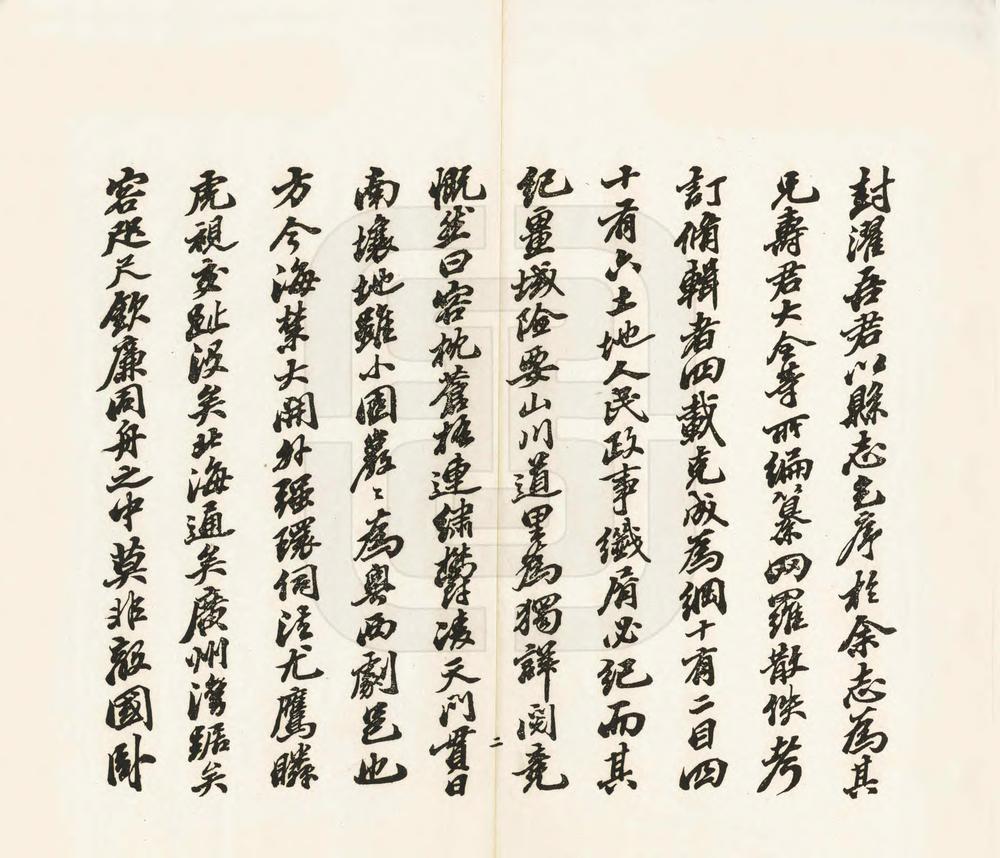 封濯吾君以縣志乞序於余志為其
兄壽君大令等所編纂網羅散佚考
訂脩輯者四載克成為綱十有二目四
十有六土地人民政事纖屑必紀而其
紀畺域險要山川道里為獨詳閱竟
慨然曰容枕蒼梧連繡鬱凌天門貫日
南壤地雖小固巖〻為粵西劇邑也
方今海禁大開外强環伺法尤鷹瞵
虎視交趾沒矣北海通矣廣州灣踞矣
容咫尺欽廉同舟之中莫非敵國卧
二